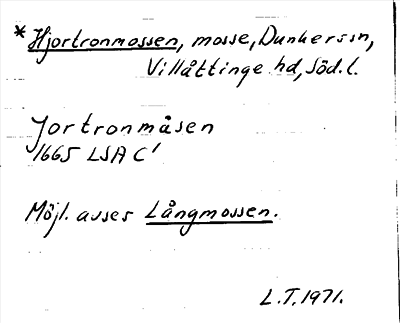 * Hjortronmossen, mosse, Dunkers sn,
Villåttinge hd, Söd. l.
Jortronmåsen
1665 LSA C'
Möjl. avses Långmossen.
L.T. 1971.